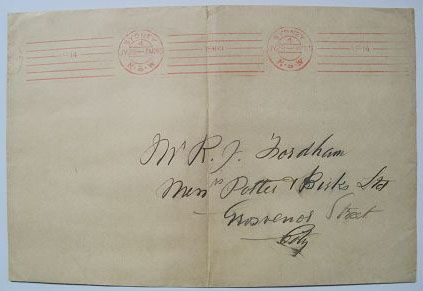 SYDNEY
4
N.S.W
SYDNEY
4
N.S.W
Mr R. J. Fordham
Messrs Potter & Birks Ltd
Grosvenor Street
City